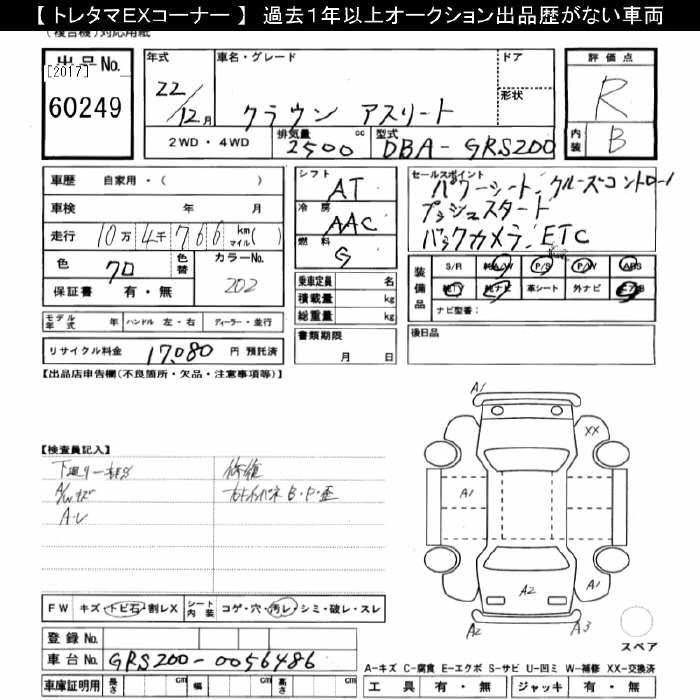 【 トレタマEXコーナー 】 過去１年以上オークション出品歴がない車両
(複合機)対応用紙
出品No.
[2017]
60249
年式
22/12月
車名・グレード
クラウン アスリート
ドア
形状
2WD・4WD
排気量 2500 cc
型式 DBA-GRS200
評価点
R
内装 B
車歴 自家用・( )
車検 年 月
走行 10万4千766 km マイル( )
色 クロ
色替
カラーNo. 202
保証書 有・無
シフト AT
冷房 AAC
燃料 G
乗車定員 名
積載量 kg
総重量 kg
セールスポイント
パワーシート、クルーズコントロール
プッシュスタート
バックカメラ、ETC
装備品
S/R 純A/W P/S P/W ABS
純TV 純ナビ 革シート 外ナビ エアB
ナビ型番:
モデル年式 年 ハンドル 左・右 ディーラー・並行
書類期限
月 日
後日品
リサイクル料金 17,080 円 預託済
【出品店申告欄(不良箇所・欠品・注意事項等)】
【検査員記入】
下廻り一部S
A/Wキズ
修復
A1
XX
A1
A1
A2
A2
A3
スペア
FW キズ・トビ石・割レX
シート内装 コゲ・穴・汚レ・シミ・破レ・スレ
登録No.
車台No. GRS200-0056486
車庫証明用 長さ cm 幅 cm 高さ cm
A―キズ C―腐食 E―エクボ S―サビ U―凹ミ W―補修 XX―交換済
工具 有・無 ジャッキ 有・無